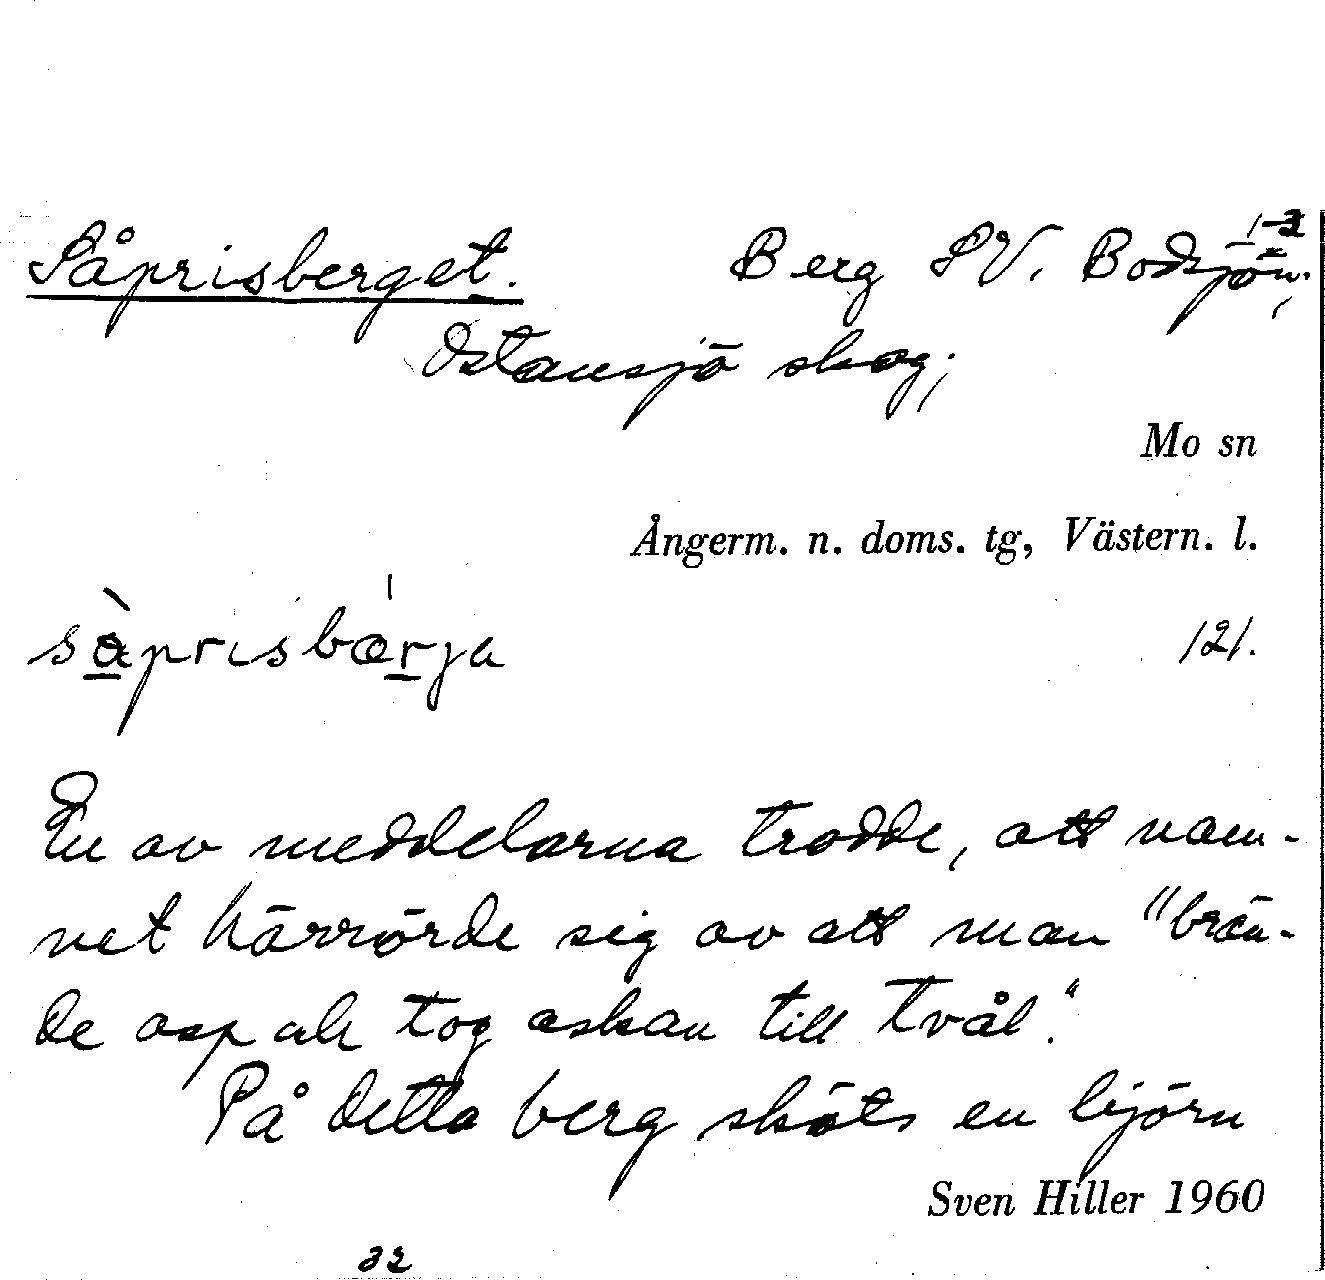 Såprisberget. Berg SV. Bodsjön; 1-2
Östansjö skog;
Mo sn
Ångerm. n. doms. tg, Västern. l.
såprisbærja 121.
En av meddelarna trodde, att nam-
net härrörde sig av att man "brän-
de asp och tog askan till tvål."
På detta berg sköts en björn
Sven Hiller 1960
32